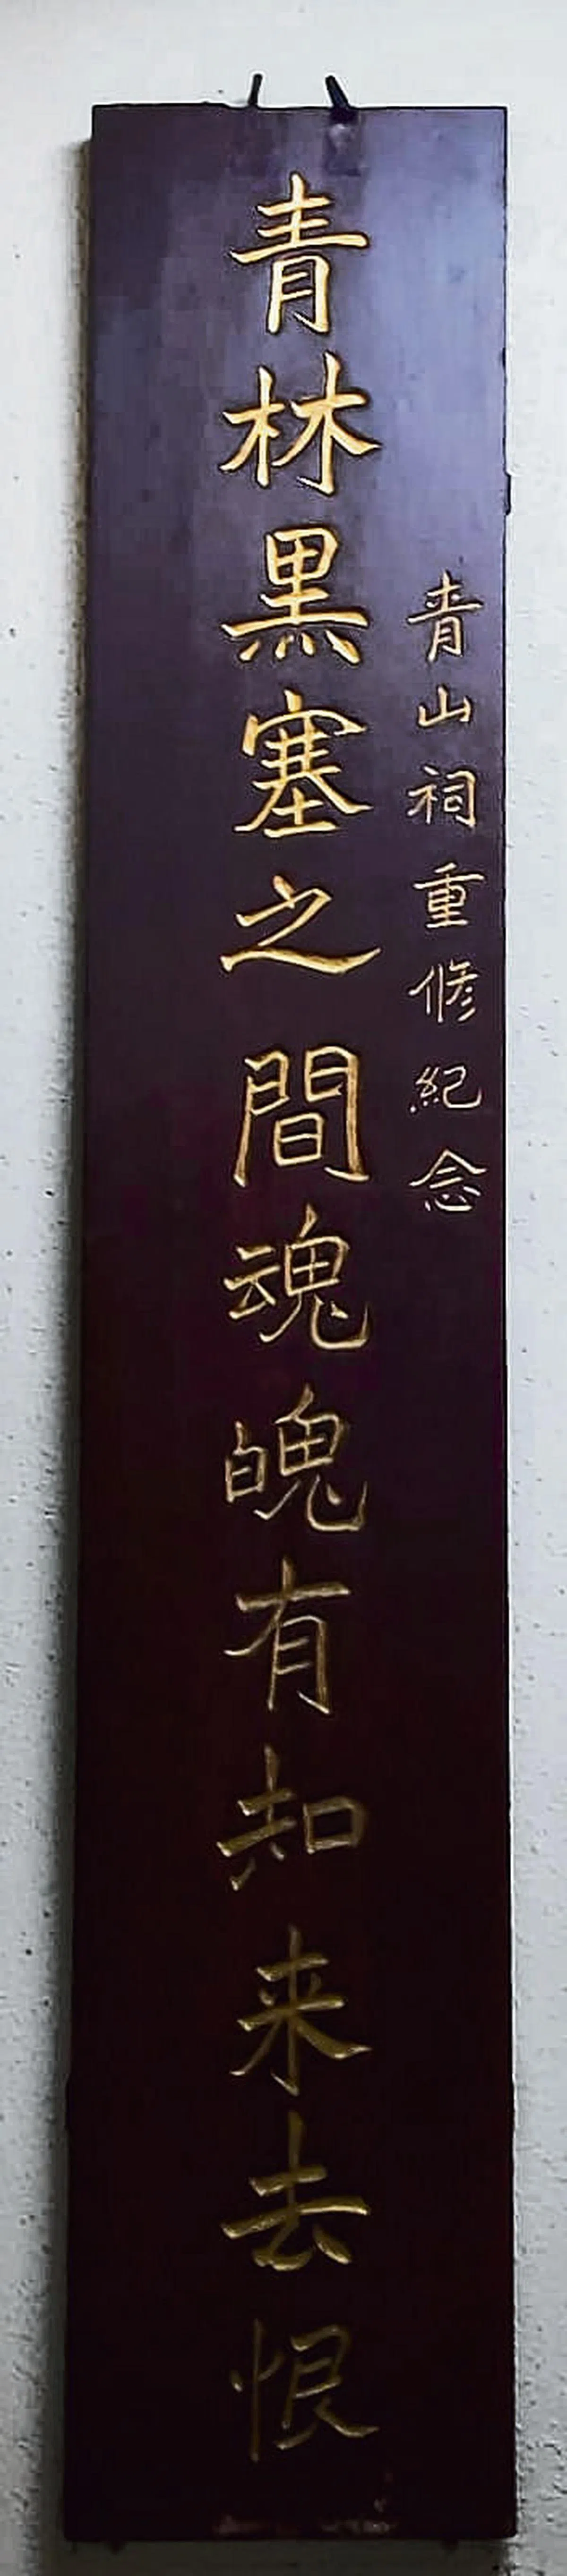 青山祠重修紀念
青林黑塞之間魂魄有知来去恨